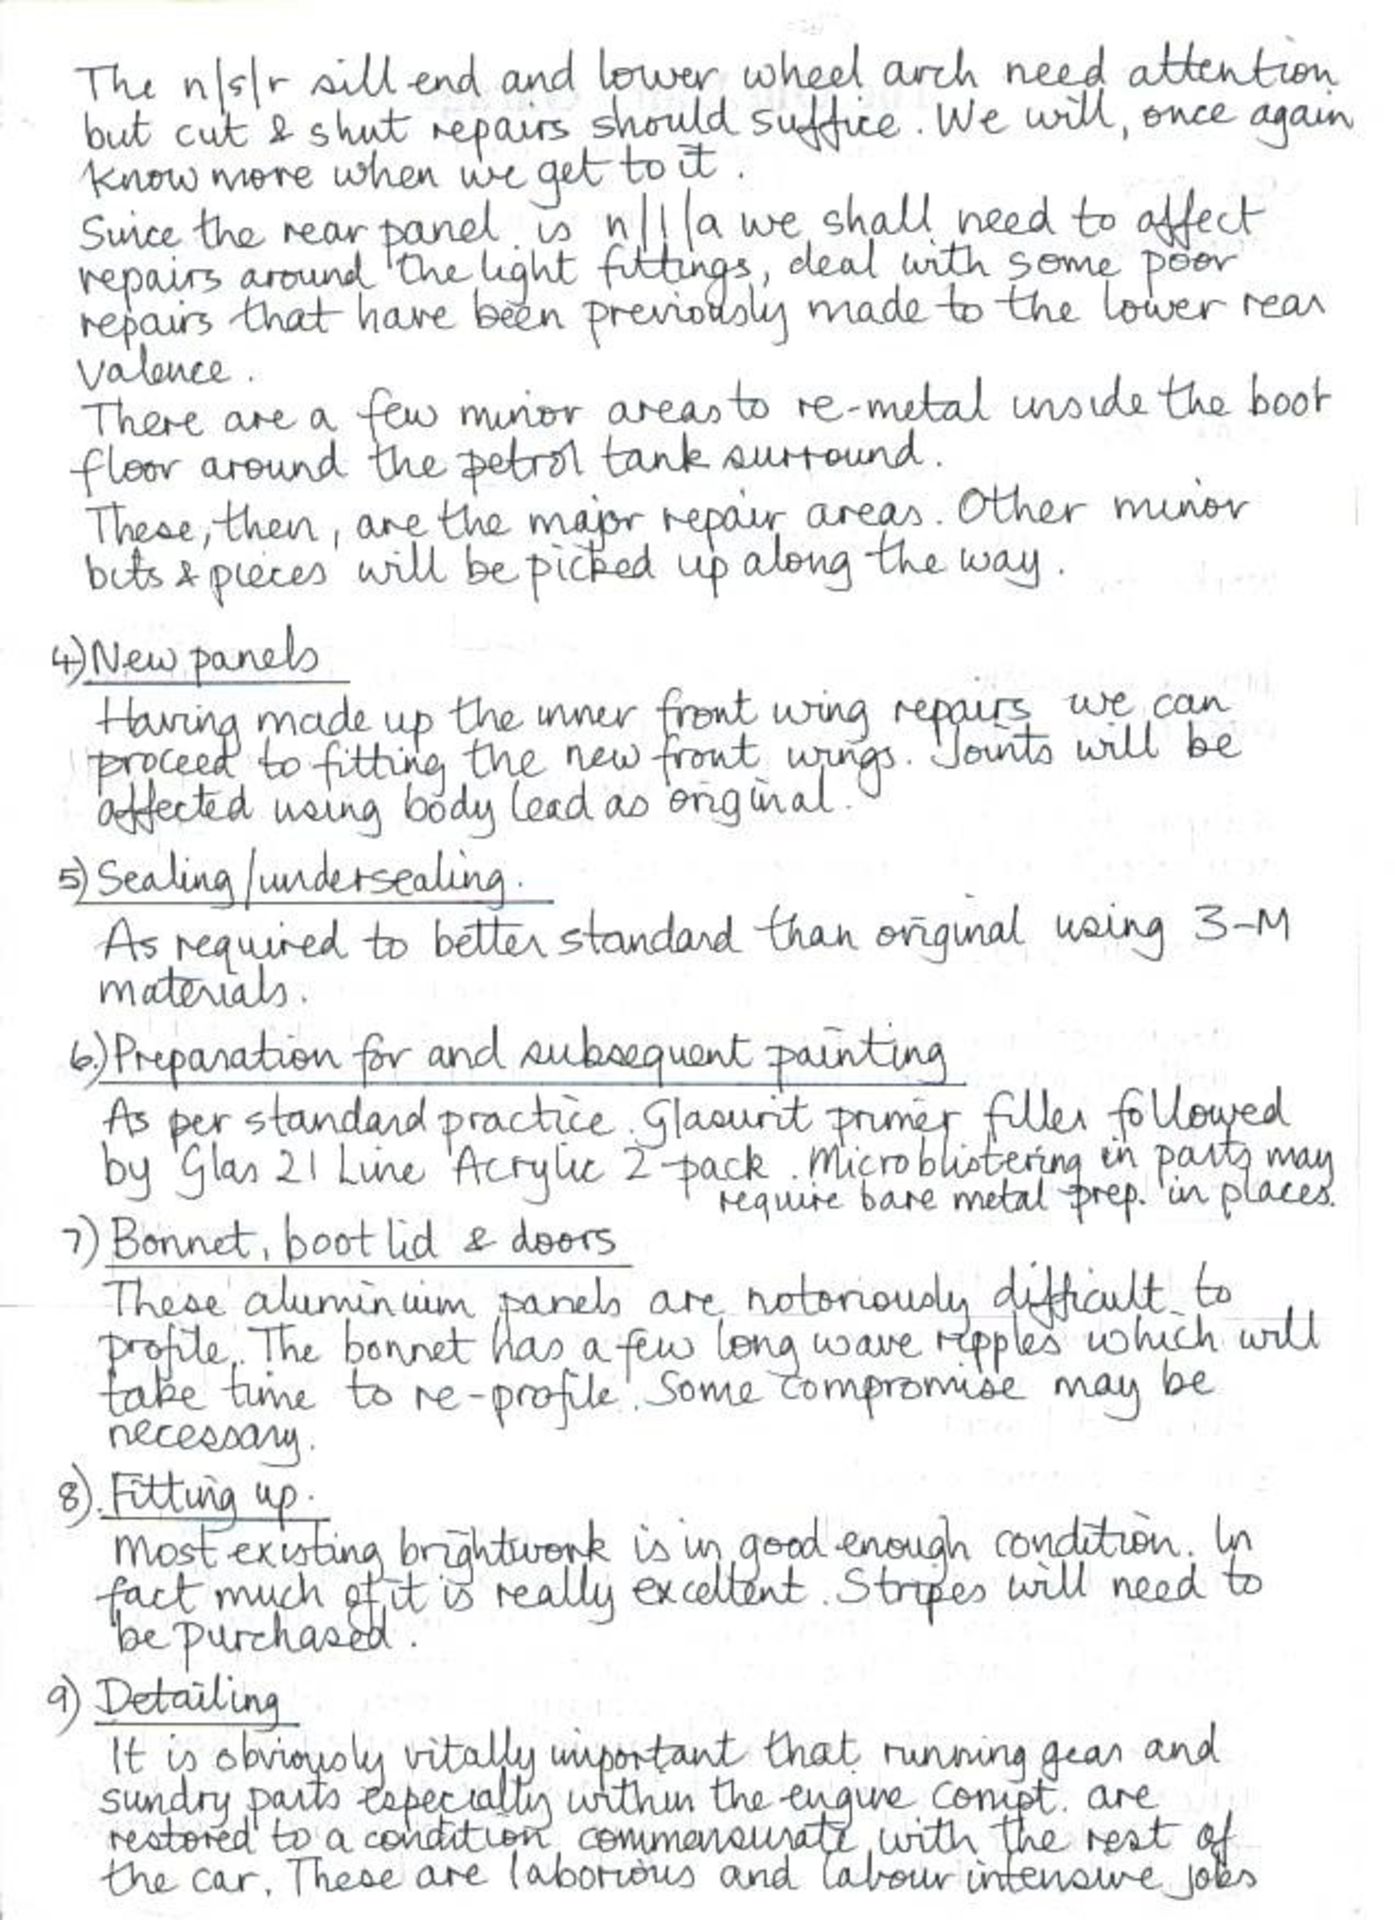 The n/s/r sill end and lower wheel arch need attention
but cut & shut repairs should suffice. We will, once again
know more when we get to it.
Since the rear panel is n/l/a we shall need to affect
repairs around the light fittings, deal with some poor
repairs that have been previously made to the lower rear
valence.
There are a few minor areas to re-metal inside the boot
floor around the petrol tank surround.
These, then, are the major repair areas. Other minor
bits & pieces will be picked up along the way.
4) New panels
Having made up the inner front wing repairs we can
proceed to fitting the new front wings. Joints will be
affected using body lead as original.
5) Sealing/undersealing.
As required to better standard than original using 3-M
materials.
6.) Preparation for and subsequent painting
As per standard practice. Glasurit primer filler followed
by Glas 21 Line Acrylic 2-pack. Microblistering in parts may
require bare metal prep. in places.
7) Bonnet, boot lid & doors
These aluminium panels are notoriously difficult to
profile. The bonnet has a few long wave ripples which will
take time to re-profile. Some compromise may be
necessary.
8). Fitting up.
Most existing brightwork is in good enough condition. In
fact much of it is really excellent. Stripes will need to
be purchased.
9) Detailing
It is obviously vitally important that running gear and
sundry parts especially within the engine compt. are
restored to a condition commensurate with the rest of
the car. These are laborious and labour intensive jobs